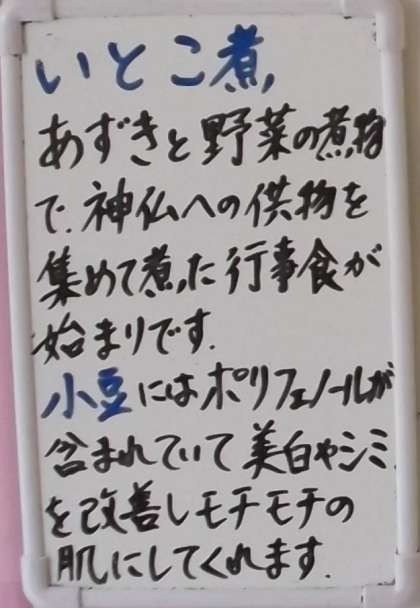 いとこ煮
あずきと野菜の煮物
で、神仏への供物を
集めて煮た行事食が
始まりです.
小豆にはポリフェノールが
含まれていて美白やシミ
を改善しモチモチの
肌にしてくれます.